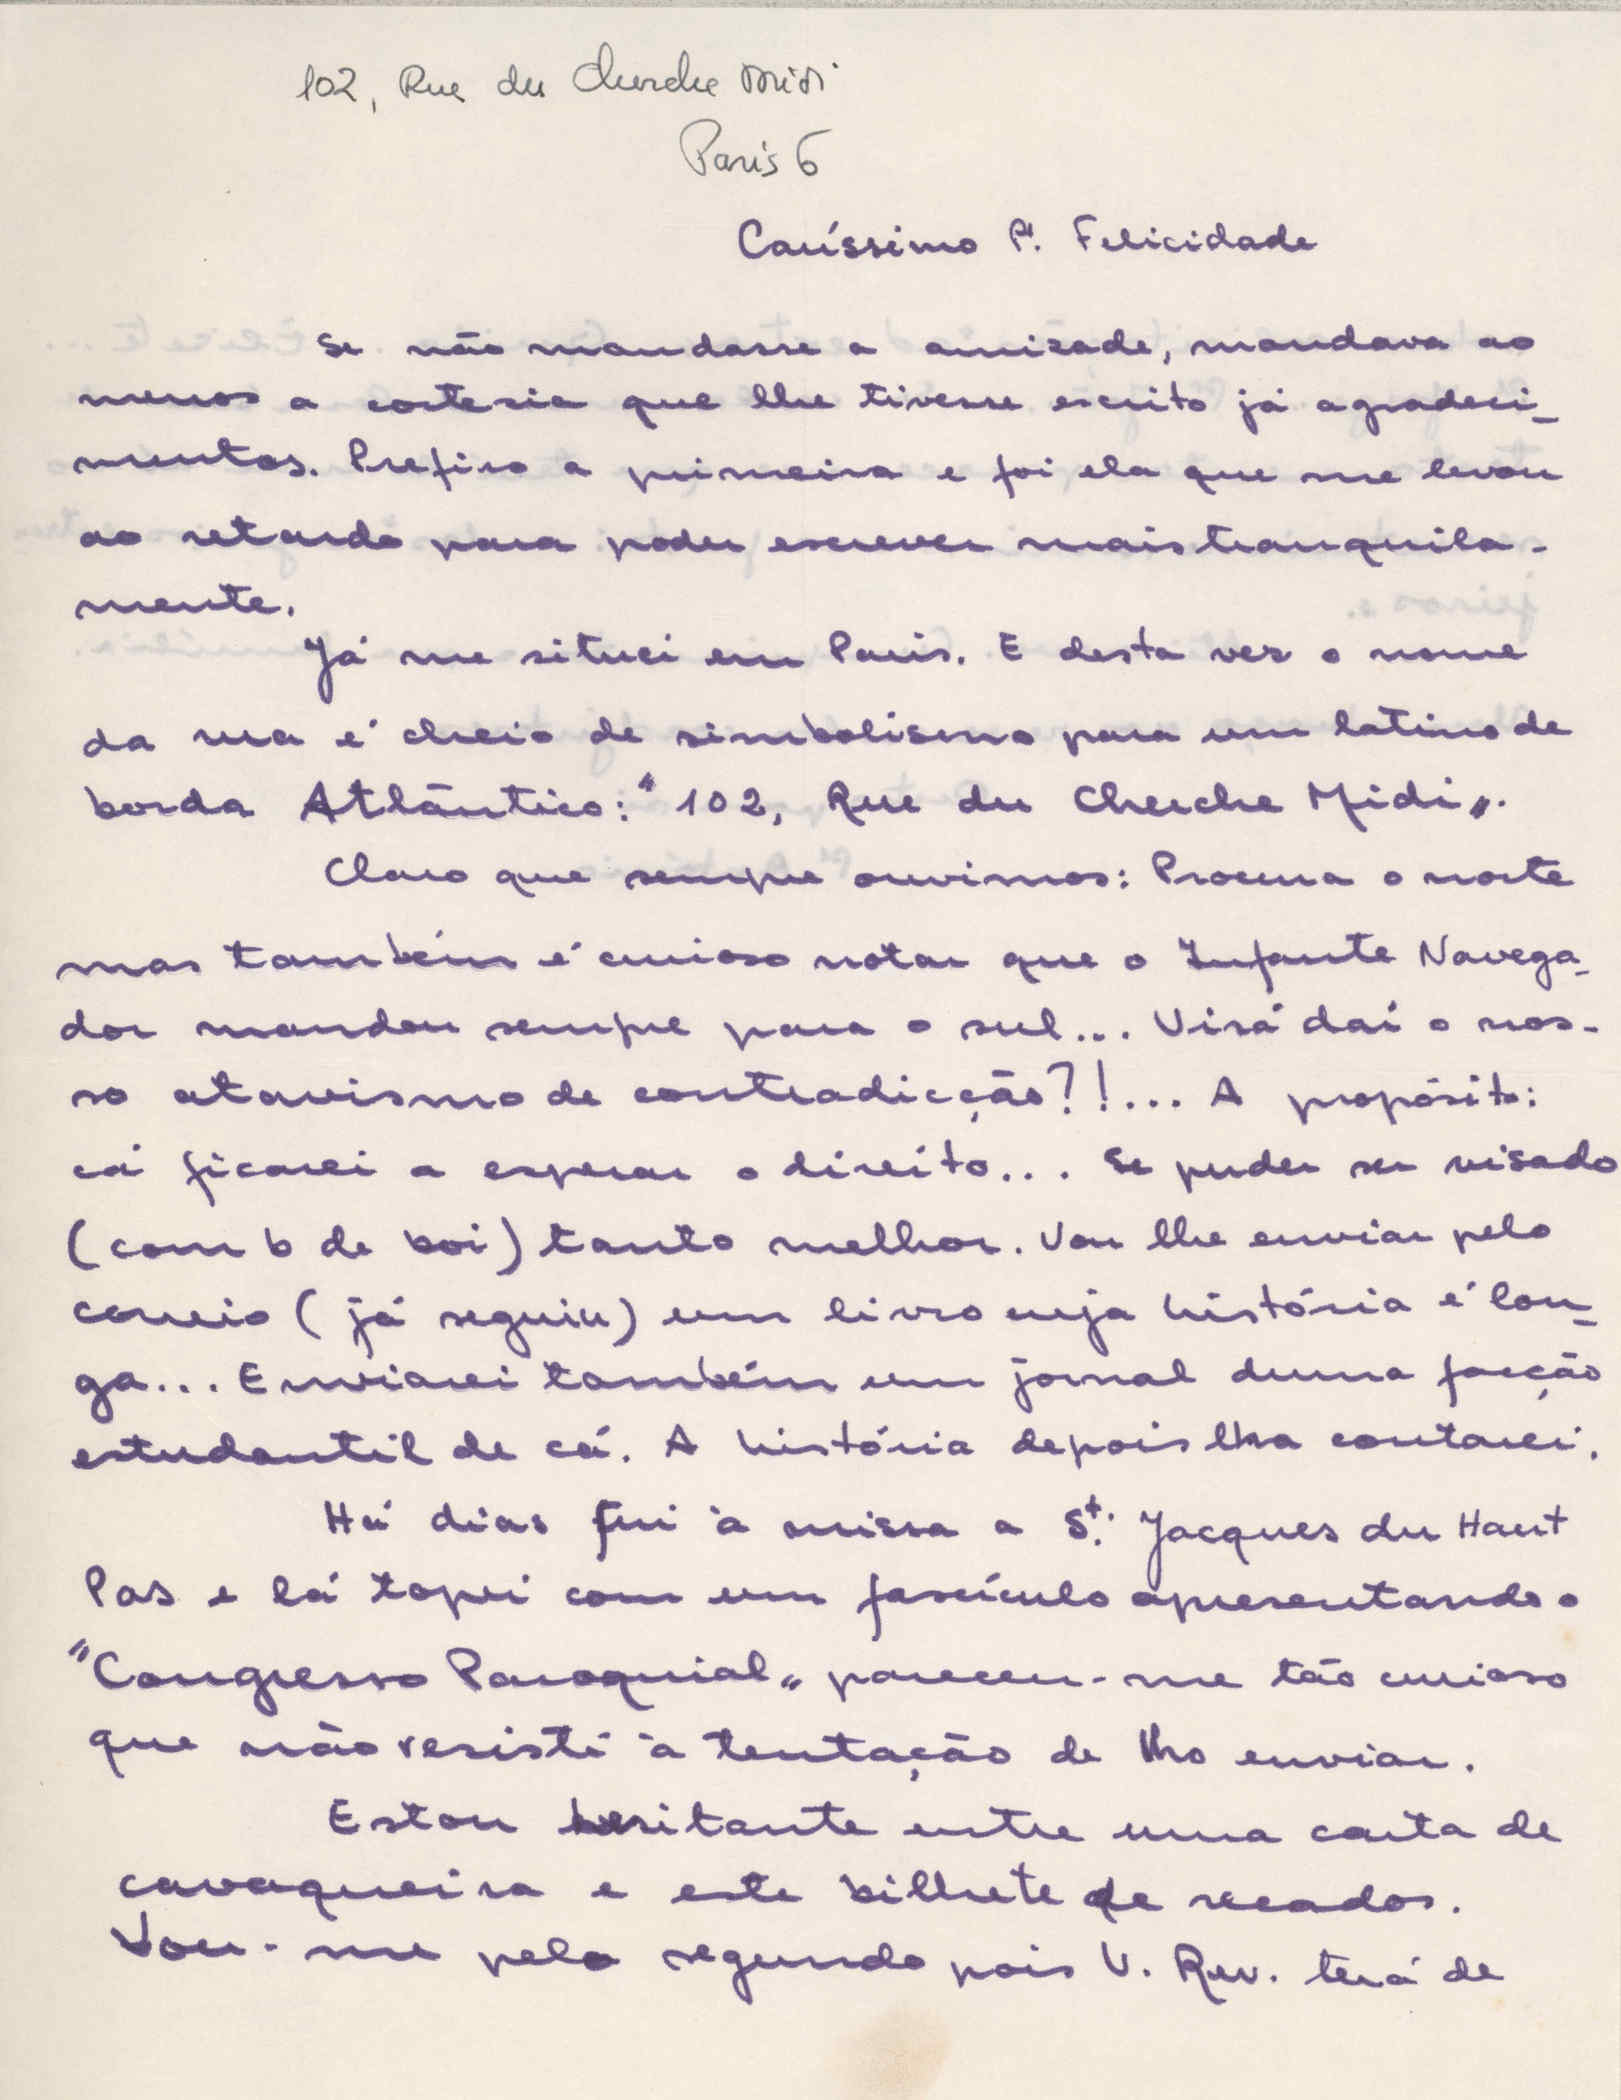 102, Rue du Cherche Midi
Paris 6
Caríssimo P.e Felicidade
Se não mandasse a amizade, mandava ao
menos a cortesia que lhe tivesse escrito já agradeci-
mentos. Prefiro a primeira e foi ela que me levou
ao retardo para poder escrever mais tranquila-
mente.
Já me situei em Paris. E desta vez o nome
da rua é cheio de simbolismo para um latino de
borda Atlântico: "102, Rue du Cherche Midi".
Claro que sempre ouvimos: Procura o norte
mas também é curioso notar que o Infante Navega-
dor mandou sempre para o sul... Virá daí o nos-
so atavismo de contradicção?!... A propósito:
cá ficarei a esperar o direito... Se puder ser visado
(com b de boi) tanto melhor. Vou lhe enviar pelo
correio (já seguiu) um livro cuja história é lon-
ga... Enviarei também um jornal duma facção
estudantil de cá. A história depois lha contarei.
Há dias fui à missa a St. Jacques du Haut
Pas e lá topei com um fascículo apresentando o
"Congresso Paroquial" pareceu-me tão curioso
que não resisti à tentação de lho enviar.
Estou hesitante entre uma carta de
cavaqueira e este bilhete de recados.
Vou-me pelo segundo pois V. Rev. terá de